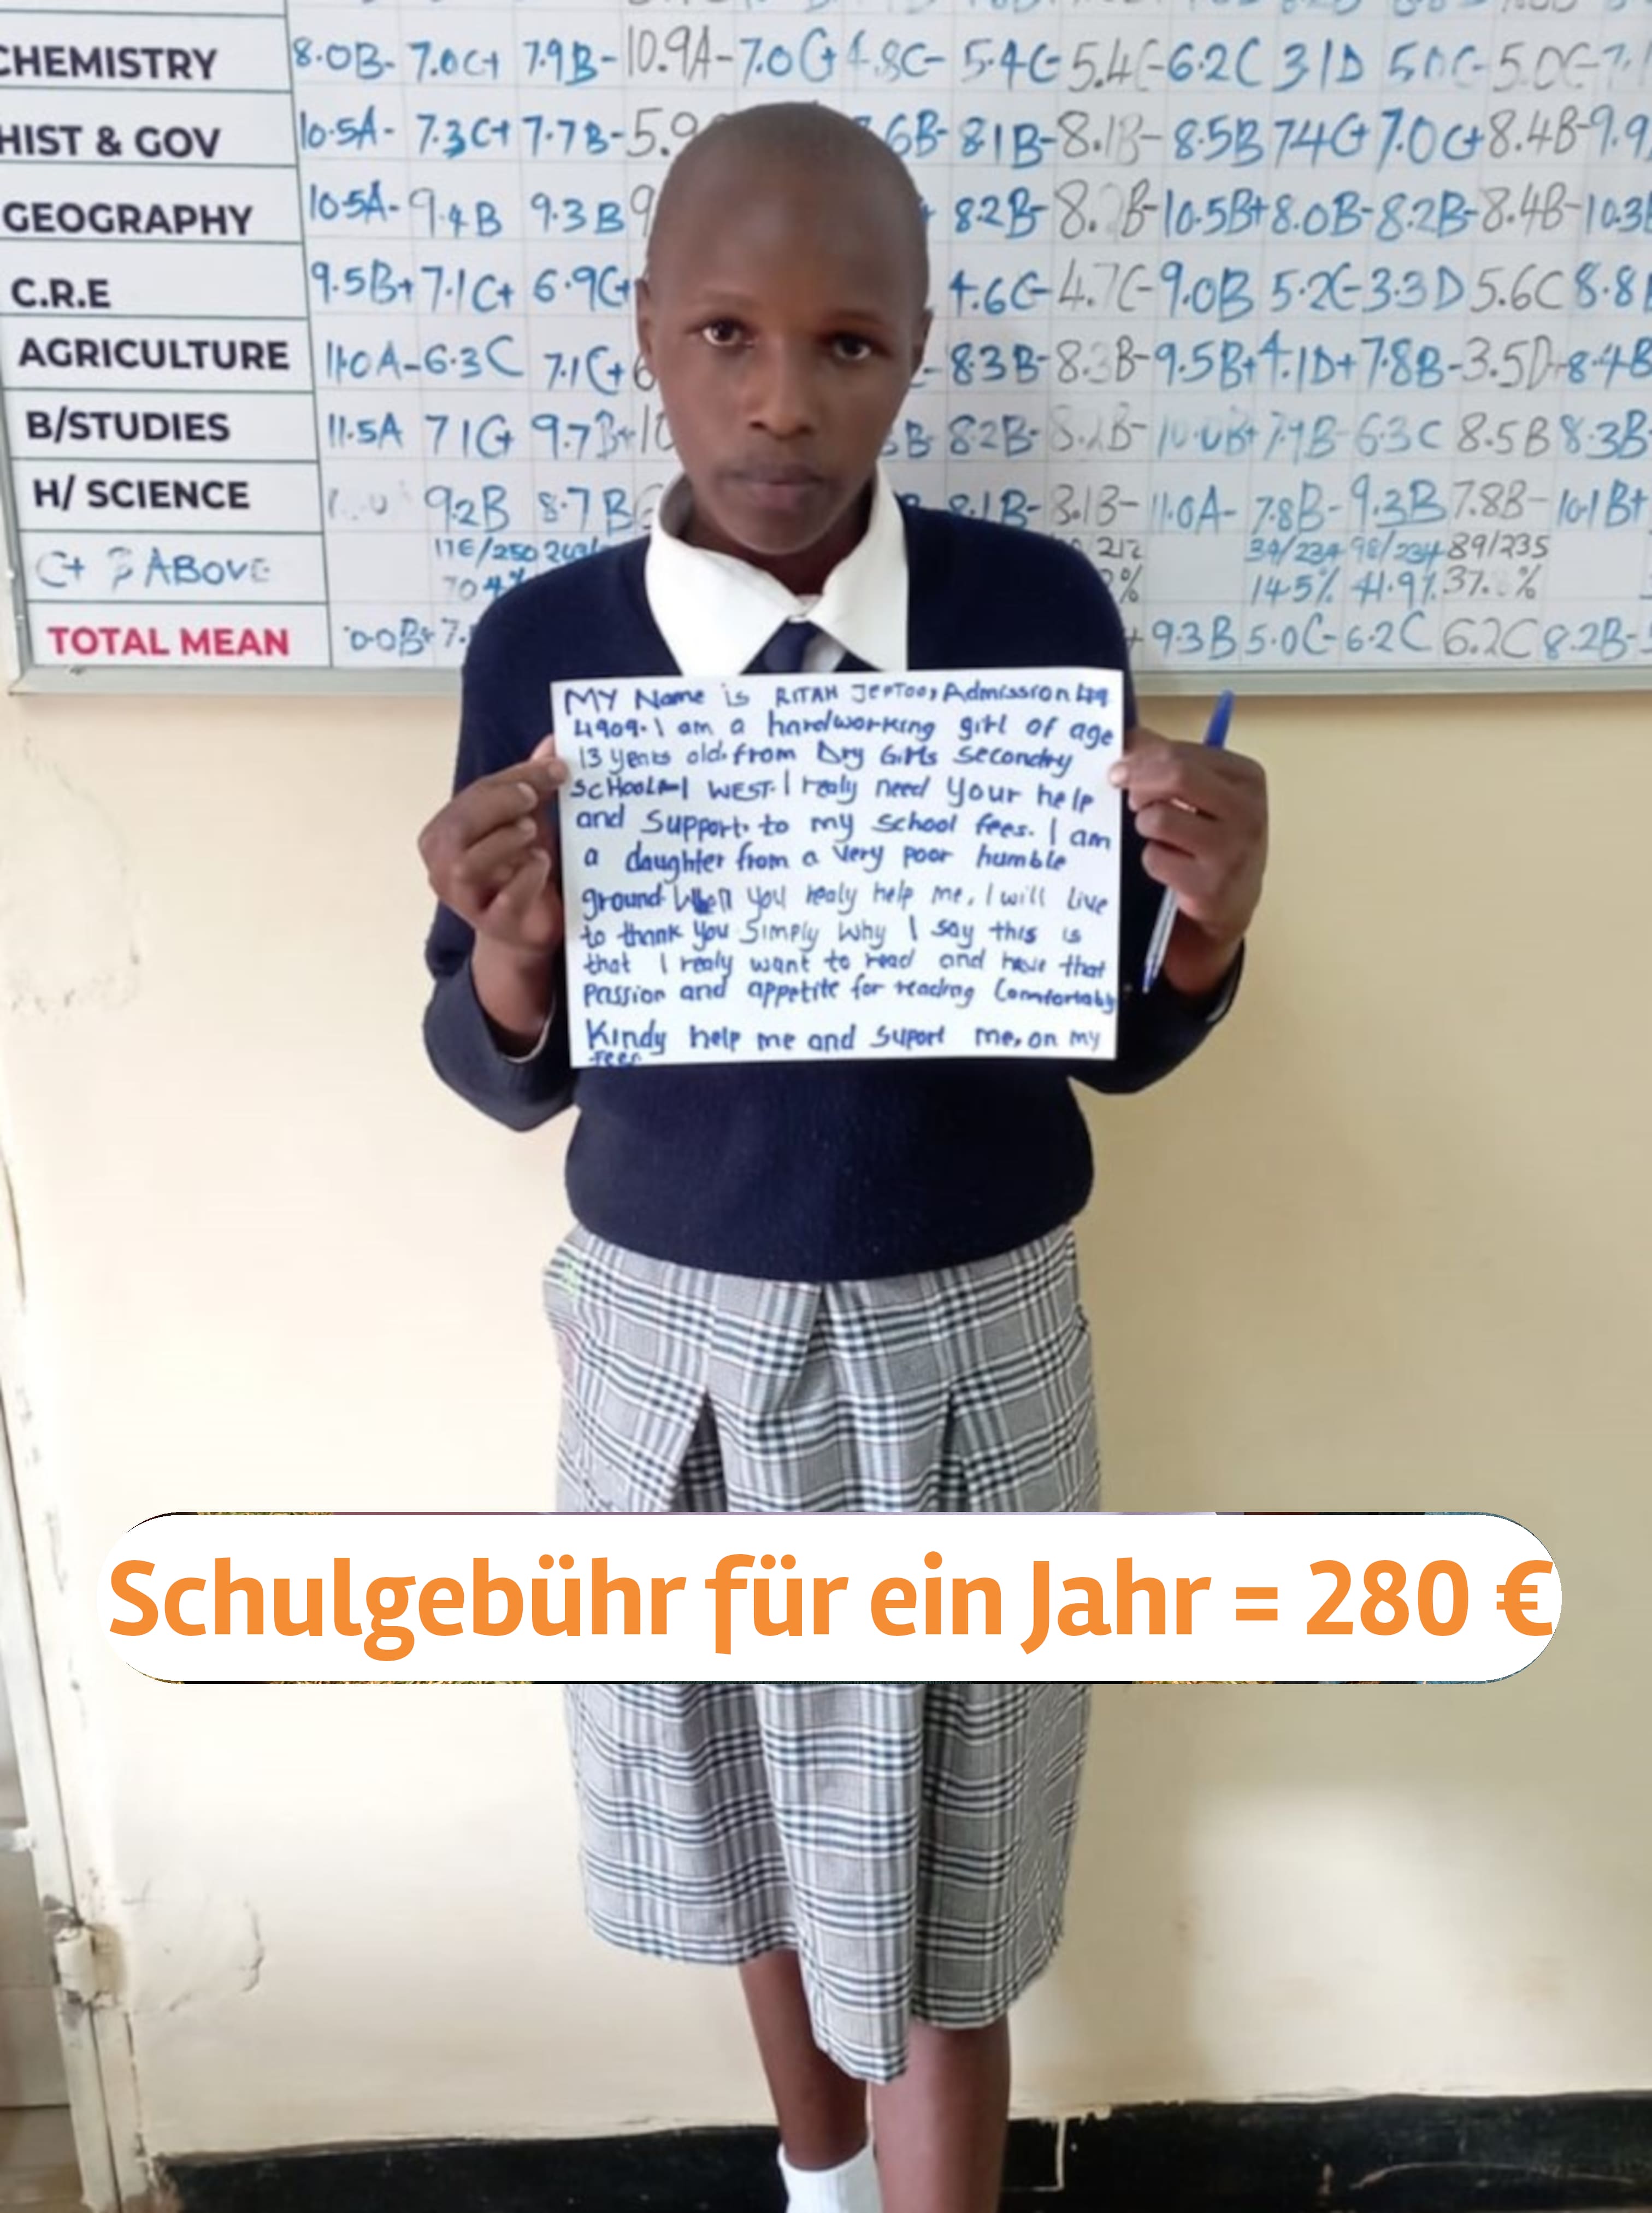 CHEMISTRY 8.0B- 7.0C+ 7.9B- 10.9A- 7.0C+ 4.8C- 5.4C- 5.4C- 6.2C 3.1D 5.0C- 5.0C-
HIST & GOV 10.5A- 7.3C+ 7.7B- 5.9 6B- 8.1B- 8.1B- 8.5B 7.4C+ 7.0C+ 8.4B- 9.9
GEOGRAPHY 10.5A- 9.4B 9.3B 8.2B- 8.2B- 10.5B+ 8.0B- 8.2B- 8.4B- 10.3
C.R.E 9.5B+ 7.1C+ 6.9C+ 4.6C- 4.7C- 9.0B 5.2C- 3.3D 5.6C 8.8
AGRICULTURE 11.0A- 6.3C 7.1C+ 8.3B- 8.3B- 9.5B+ 4.1D+ 7.8B- 3.5D+ 8.4B
B/STUDIES 11.5A 7.1C+ 9.7B+ 8.2B- 8.2B- 10.0B+ 7.9B- 6.3C 8.5B 8.3B-
H/ SCIENCE 9.2B 8.7B 8.1B- 8.1B- 11.0A- 7.8B- 9.3B 7.8B- 10.1B+
176/250 212 34/234 98/234 89/235
C+ & ABOVE 70.4% 14.5% 41.9% 37. %
TOTAL MEAN 9.3B 5.0C- 6.2C 6.2C 8.2B-
MY Name is RITAH JEPTOO, Admission
4909. I am a hardworking girl of age
13 years old. from Dry Girls Secondry
SCHOOL WEST. I realy need your help
and Support. to my school fees. I am
a daughter from a very poor humble
ground When you realy help me, I will live
to thank you Simply why I say this is
that I realy want to read and have that
Passion and appetite for reading Comfortably
Kindy help me and Suport me, on my
fees
Schulgebühr für ein Jahr = 280 €